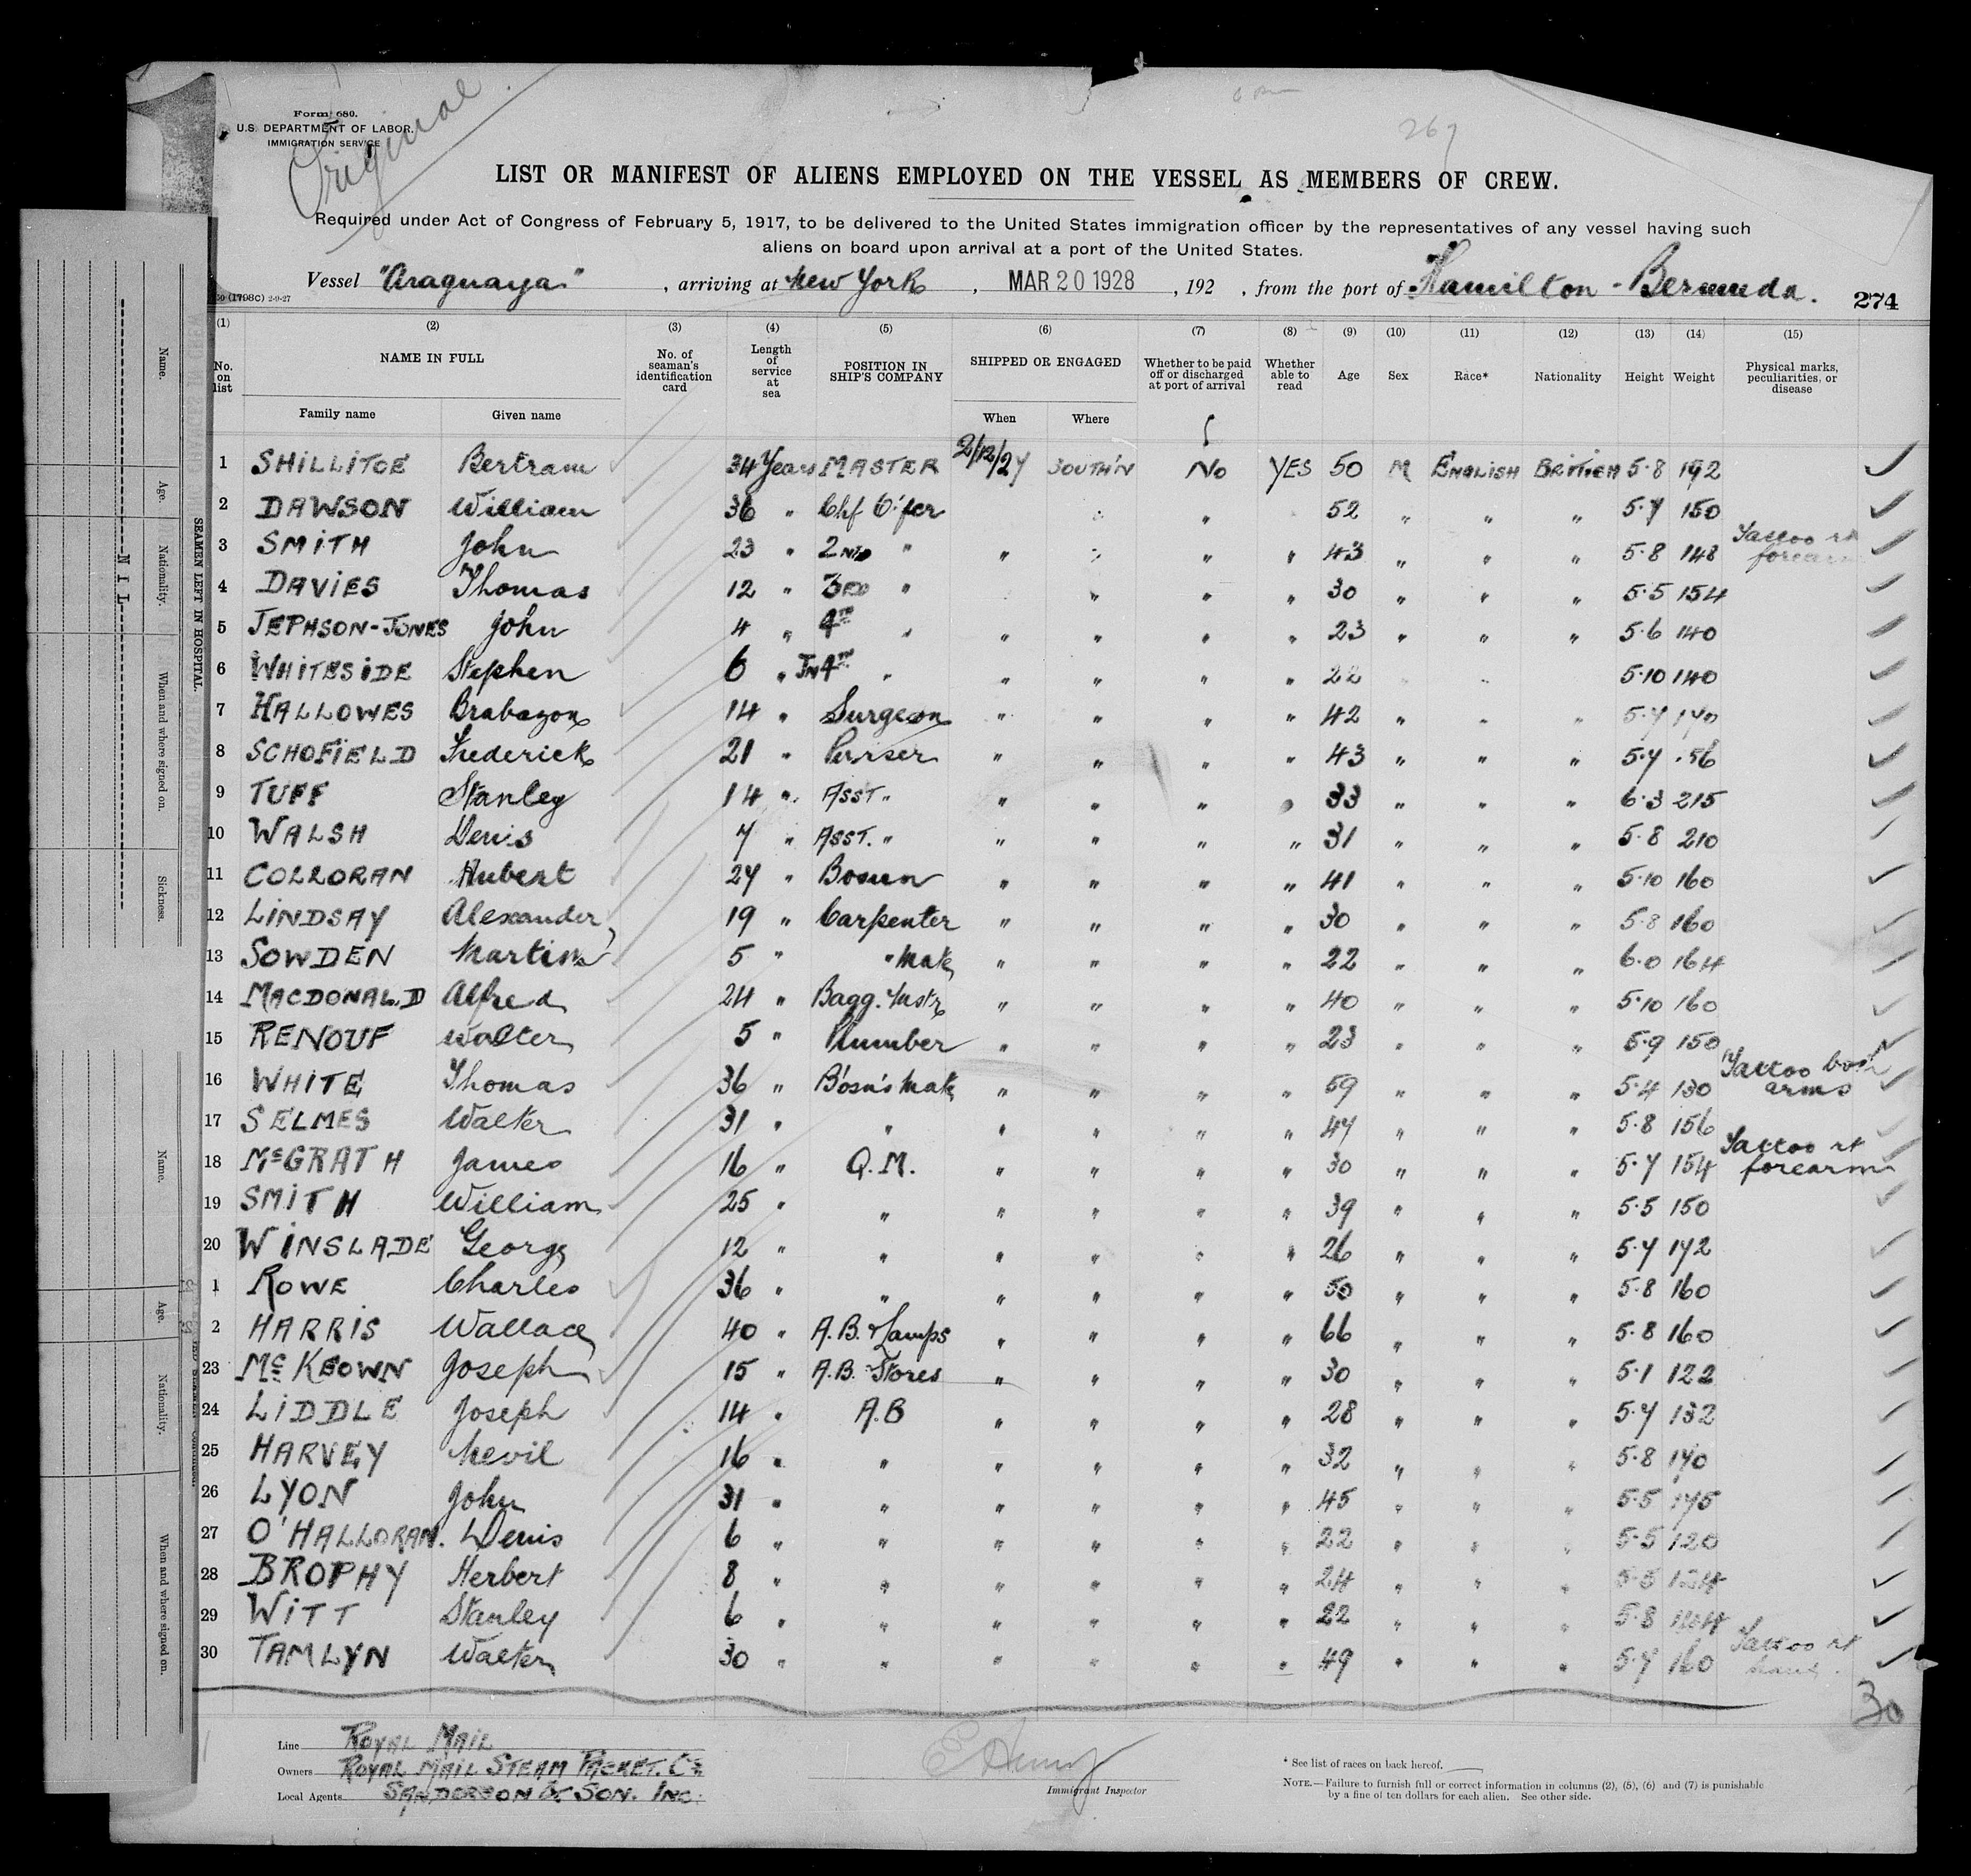 Original
267
Form 680.
U.S. DEPARTMENT OF LABOR.
IMMIGRATION SERVICE
LIST OR MANIFEST OF ALIENS EMPLOYED ON THE VESSEL AS MEMBERS OF CREW.
Required under Act of Congress of February 5, 1917, to be delivered to the United States immigration officer by the representatives of any vessel having such
aliens on board upon arrival at a port of the United States.
Vessel "Araguaya" , arriving at New York , MAR 20 1928 , 192 , from the port of Hamilton - Bermuda.
(1708C) 2-9-27
274
(1) (2) (3) (4) (5) (6) (7) (8) (9) (10) (11) (12) (13) (14) (15)
No. on list NAME IN FULL No. of seaman's identification card Length of service at sea POSITION IN SHIP'S COMPANY SHIPPED OR ENGAGED Whether to be paid off or discharged at port of arrival Whether able to read Age Sex Race* Nationality Height Weight Physical marks, peculiarities, or disease
Family name Given name When Where
1 SHILLITOE Bertram 34 Years MASTER 2/12/27 SOUTH'N No YES 50 M ENGLISH BRITISH 5·8 192
2 DAWSON William 36 " Chf O'fer " 52 " " " 5·7 150
3 SMITH John 23 " 2ND " " " " " 43 " " " 5·8 148 Tattoo rt forearm
4 DAVIES Thomas 12 " 3RD " " " " 30 " " " 5·5 154
5 JEPHSON-JONES John 4 " 4TH " " " " " 23 " " " 5·6 140
6 WHITESIDE Stephen 6 " JN 4TH " " " " " 22 5·10 140
7 HALLOWES Brabazon 14 " Surgeon " " " " 42 " " " 5·7 170
8 SCHOFIELD Frederick 21 " Purser " " " 43 " " " 5·7 56
9 TUFF Stanley 14 " ASST. " " " " " 33 " " " 6·3 215
10 WALSH Denis 7 " ASST. " " " " " 31 " " " 5·8 210
11 COLLORAN Hubert 27 " Bosun " " " " 41 " " " 5·10 160
12 LINDSAY Alexander 19 " Carpenter " " " " 30 " " " 5·8 160
13 SOWDEN Martin 5 " " Mate " " " " 22 " " " 6·0 164
14 MACDONALD Alfred 24 " Bagg. Mstr " " " " 40 " " " 5·10 160
15 RENOUF Walter 5 " Plumber " " " " 23 " " " 5·9 150
16 WHITE Thomas 36 " B'osn's Mate " " " " 59 " " " 5·4 130 Tattoo both arms
17 SELMES Walter 31 " " " " " " 47 " " " 5·8 156
18 McGRATH James 16 " Q.M. " " " " 30 " " " 5·7 154 Tattoo rt forearm
19 SMITH William 25 " " " " " " 39 " " " 5·5 150
20 WINSLADE George 12 " " " " " " 26 " " " 5·7 172
1 ROWE Charles 36 " " " " " " 50 " " " 5·8 160
2 HARRIS Wallace 40 " A.B. Lamps " " " " 66 " " " 5·8 160
23 McKEOWN Joseph 15 " A.B. Stores " " " " 30 " " " 5·1 122
24 LIDDLE Joseph 14 " A.B " " " " 28 " " " 5·7 132
25 HARVEY Nevil 16 " " " " " " 32 " " " 5·8 170
26 LYON John 31 " " " " " " 45 " " " 5·5 175
27 O'HALLORAN. Denis 6 " " " " " " 22 " " " 5·5 120
28 BROPHY Herbert 8 " " " " " " 24 " " " 5·5 124
29 WITT Stanley 6 " " " " " " 22 " " " 5·8
30 TAMLYN Walter 30 " " " " " " 49 " " " 5·7 160 Tattoo rt hand.
30
Line ROYAL MAIL
Owners ROYAL MAIL STEAM PACKET. Co.
Local Agents SANDERSON & SON. INC.
Immigrant Inspector
* See list of races on back hereof.
NOTE.—Failure to furnish full or correct information in columns (2), (5), (6) and (7) is punishable
by a fine of ten dollars for each alien. See other side.
SEAMEN LEFT IN HOSPITAL.
Name.
Age.
Nationality.
When and where signed on.
Sickness.
NIL
Name.
Age.
Nationality.
When and where signed on.